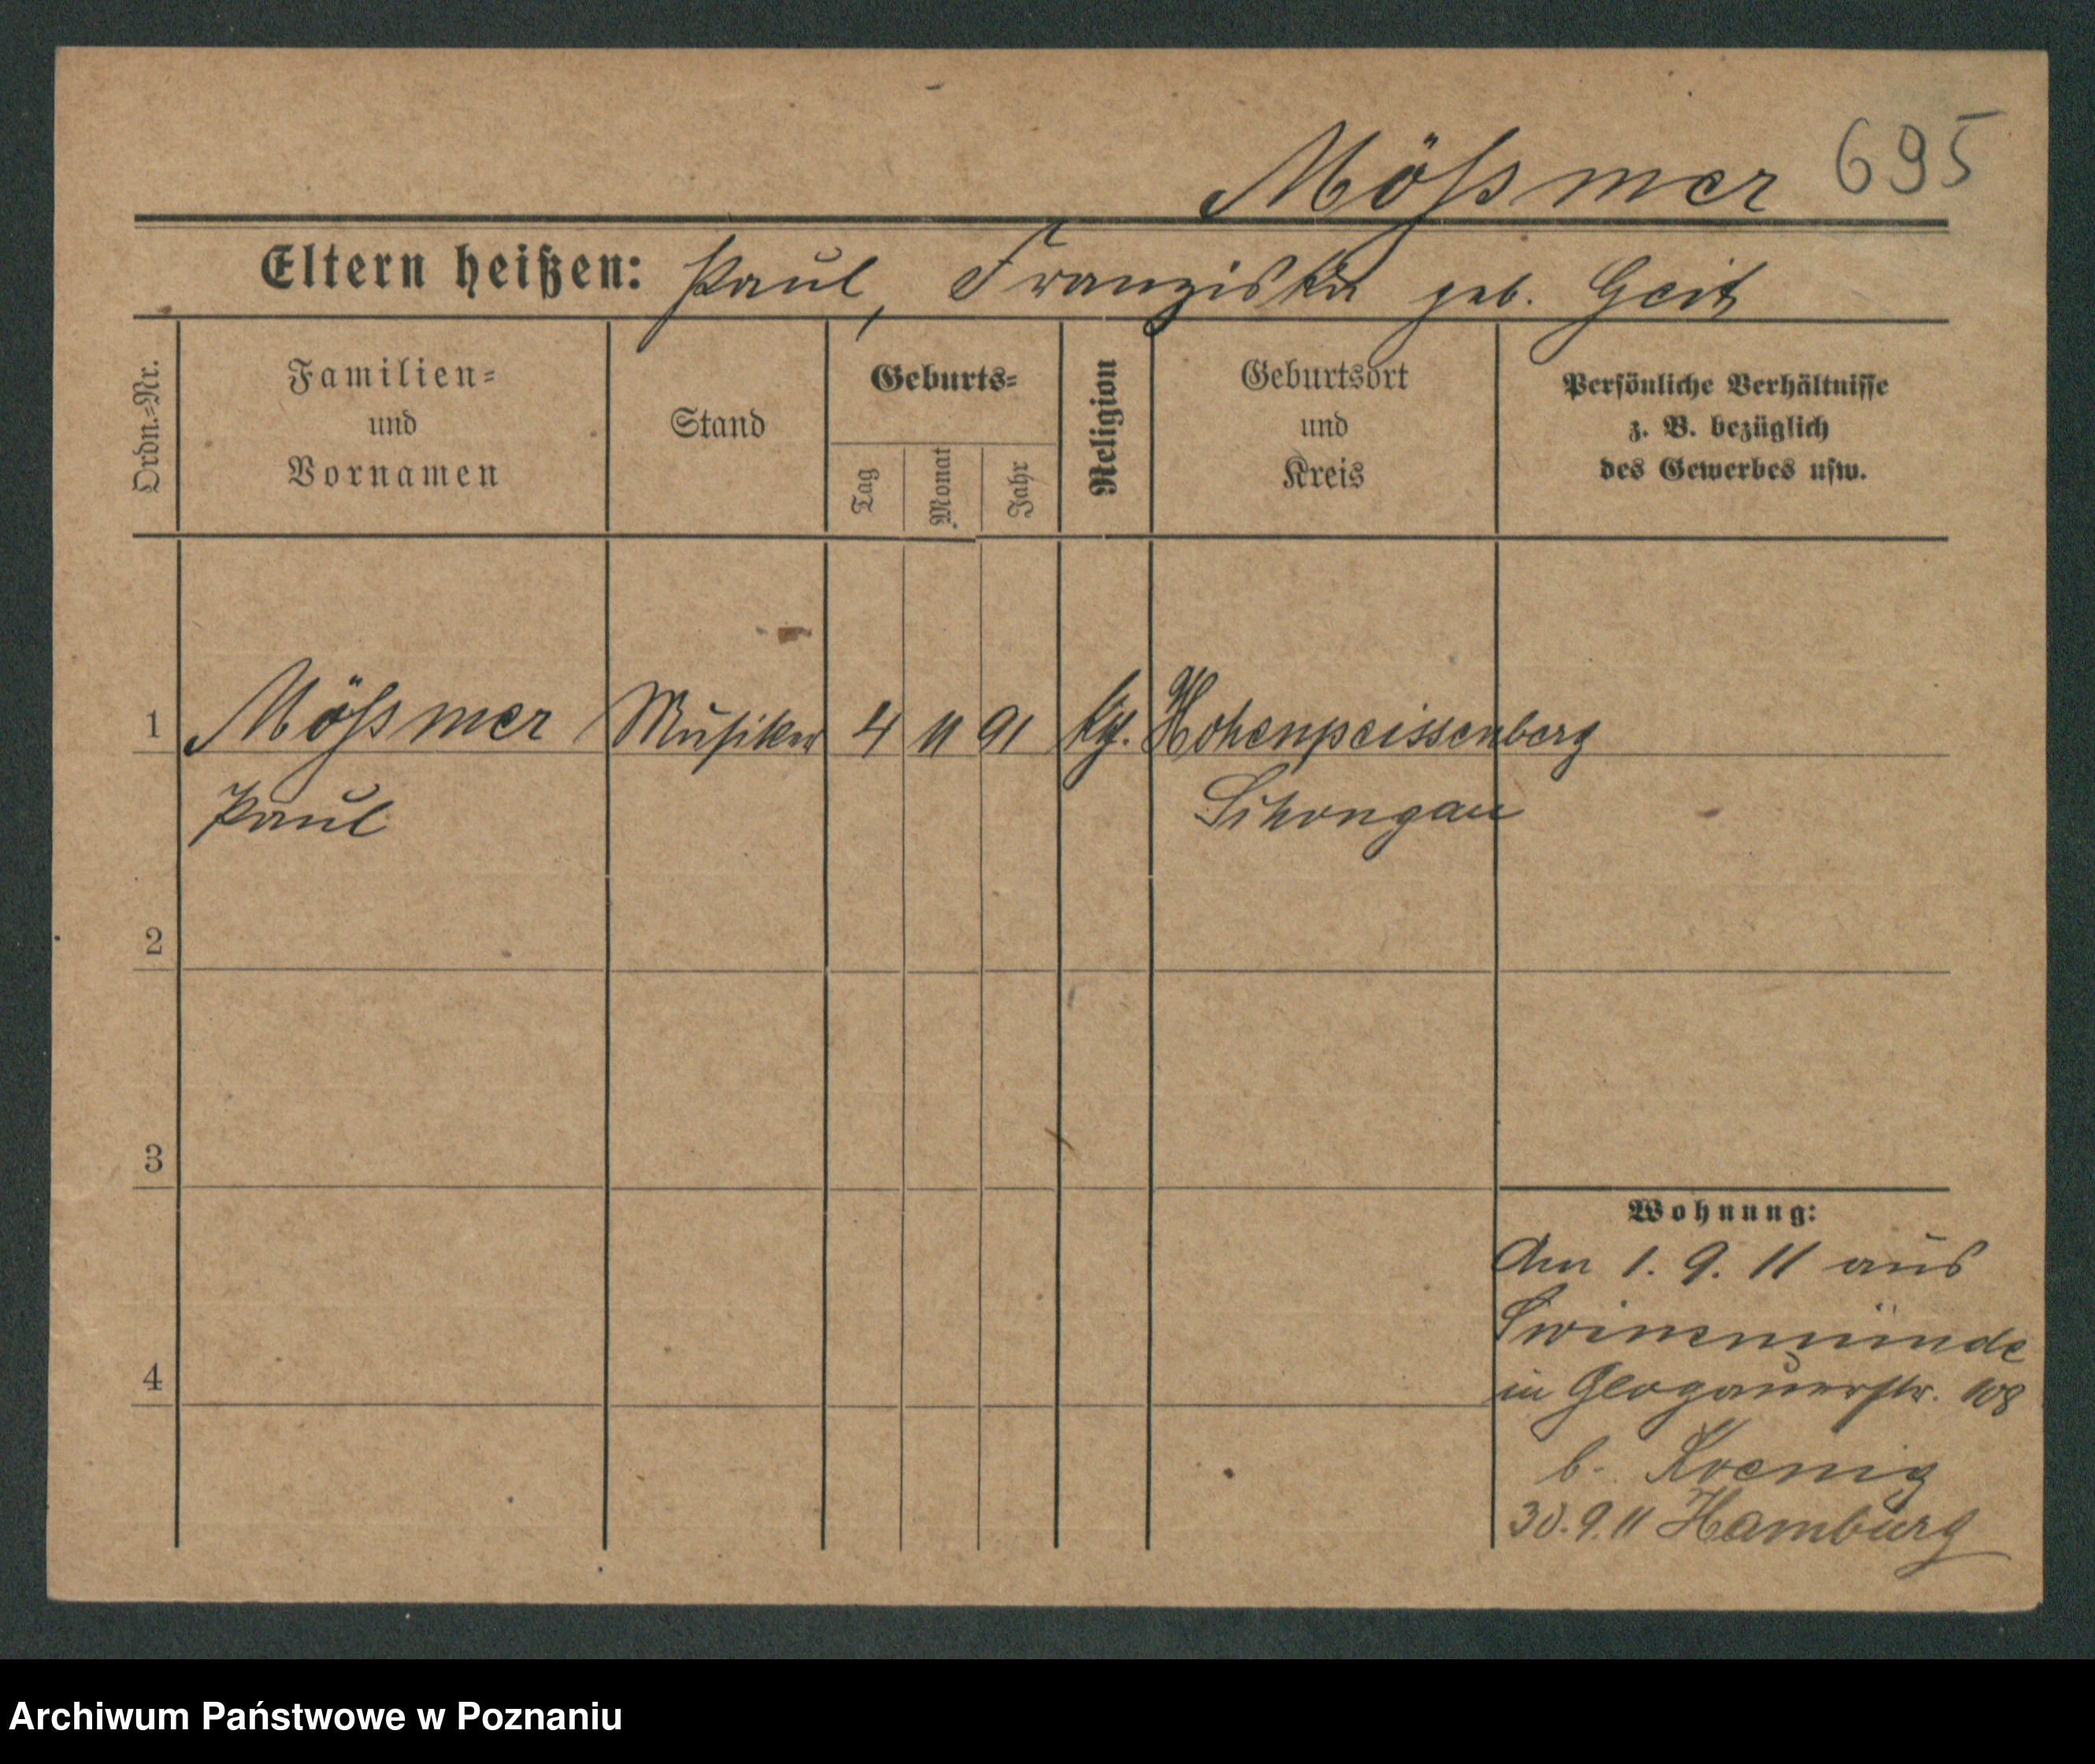 Mößmer 695
Eltern heißen: Paul, Franziska geb. Geit
Ordn.-Nr.
Familien-
und
Vornamen
Stand
Geburts-
Tag
Monat
Jahr
Religion
Geburtsort
und
Kreis
Persönliche Verhältnisse
z. B. bezüglich
des Gewerbes usw.
1 Mößmer Musiker 4 11 91 Hohenpeissenberg
Paul Schongau
2
3
Wohnung:
Am 1. 9. 11 aus
Swinemünde
4
in Glogauerstr. 108
b. Koenig
30. 9. 11 Hamburg
Archiwum Państwowe w Poznaniu